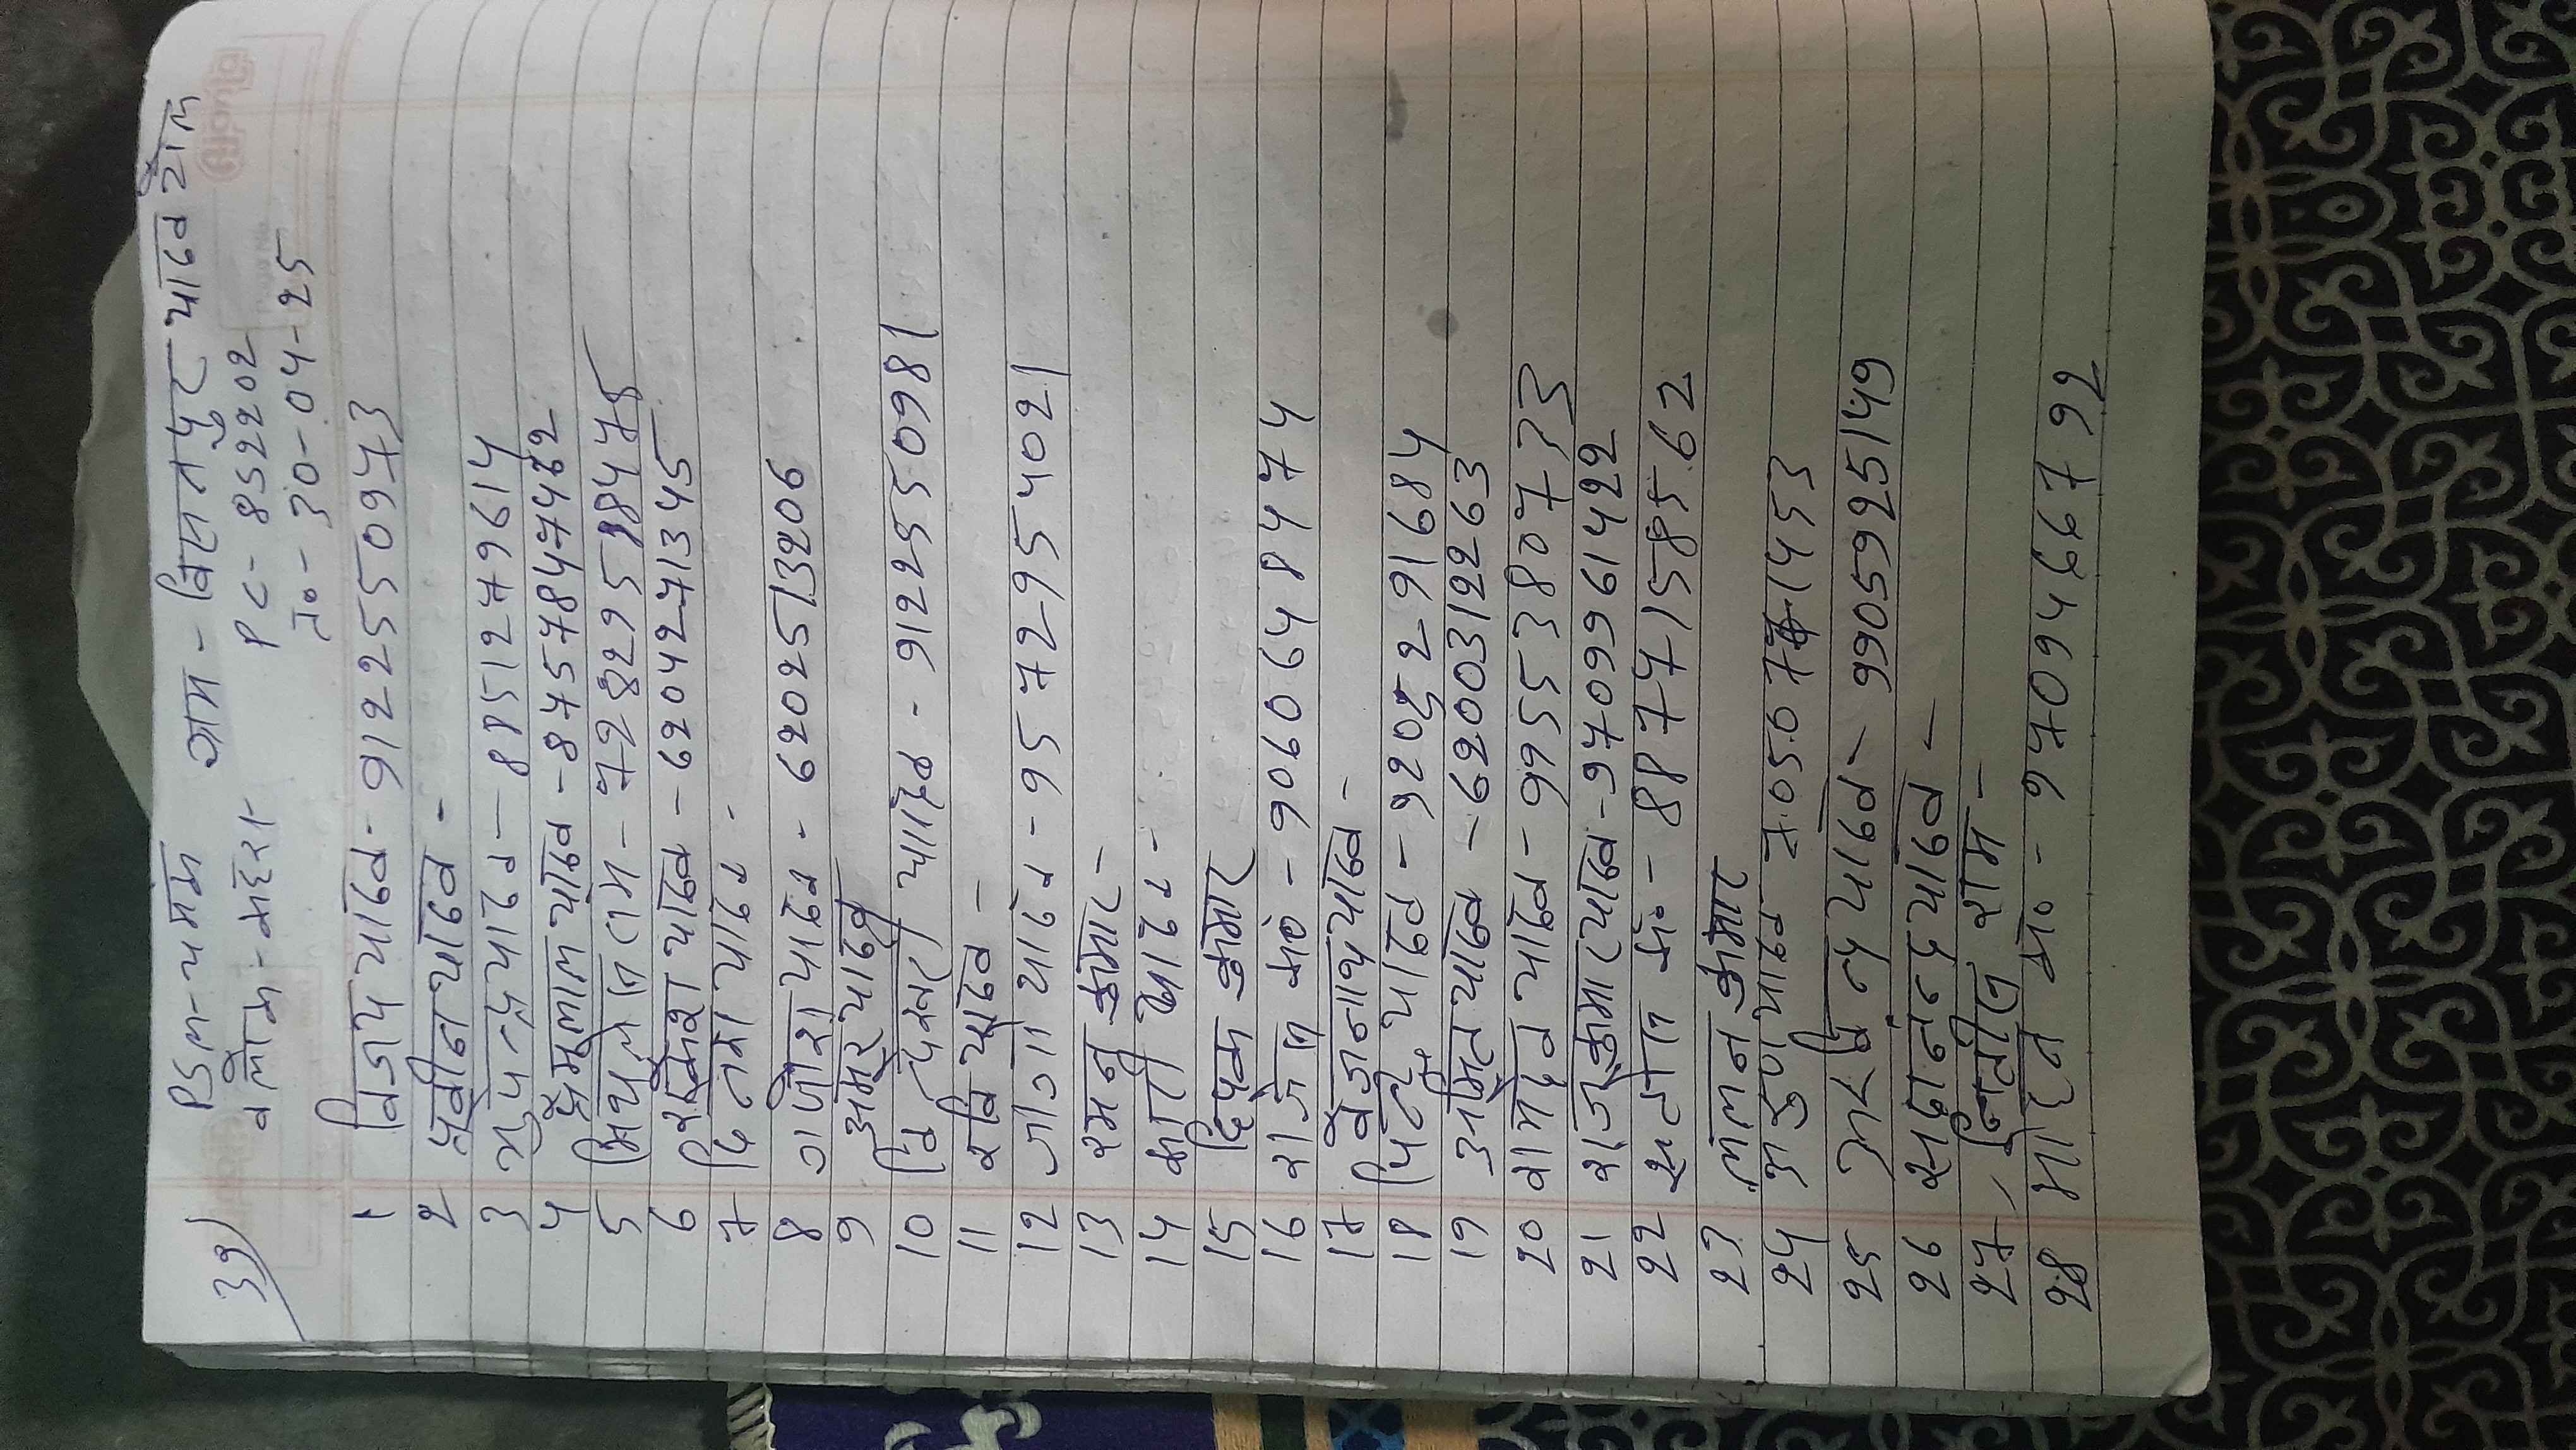 39)
PSM - पमम ग्राम - बिसनपुर यादव टोल
क्लोम - महेश PC - 852202
ता० - 30-04-25
1 विजय यादव - 9122550973
2 प्रवीन यादव -
3 भुपेन्द्र यादव - 8851279614
4 प्रेमलाल यादव - 8757847482
5 मिथुन राम - 7282958475
6 यादव - 6204271345
7 दिनेश यादव -
8 गणेश यादव - 6202513206
9 अमर यादव
10 यादव - 9122550981
11 रवि यादव -
12 जोगी यादव - 9572954021
13 रमन कुमार -
14 यादव -
15 दिपक कुमार
16 सं० - 9060648474
17 बैजनाथ यादव -
18 पिंटू यादव - 9205291684
19 अमित यादव - 6200312263
20 यादव - 9955380733
21 राजकुमार यादव - 9709961422
22 सं० - 8877158562
23 ललन कुमार
24 अरुण यादव 7050771453
25 यादव - 9905925149
26 सदानन्द यादव -
27 नितीश राम -
28 सं० - 9709466792